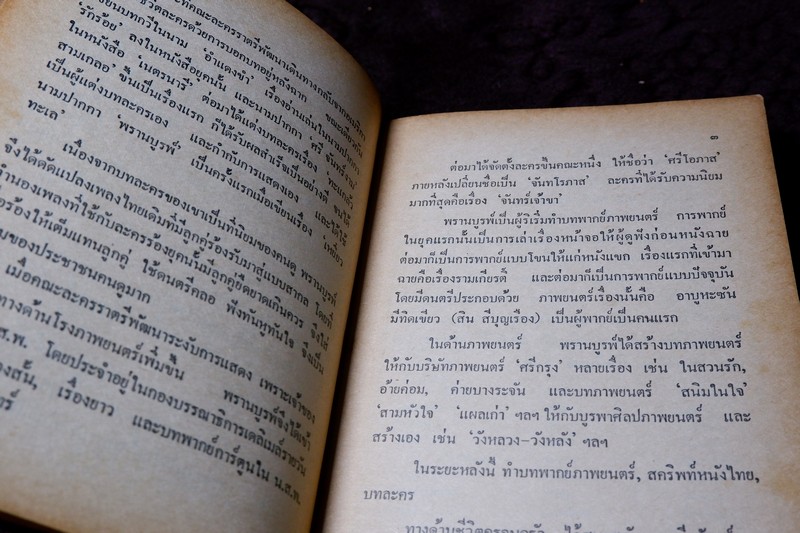 ทศิคณะละครราตรีพัฒนาเดินทางกลับจาก
ชีวิตละครด้วยการบอกบทอยู่หลังฉาก ขณะเดียวกัน
เขียนบทกวีในนาม ‘อำแดงขำ’ เรื่องอ่านเล่นในนามปากกา
‘รักร้อย’ ลงในหนังสือยุคนั้น และนามปากกา ‘ศรี จันทร์งาม’
ในหนังสือ ‘เนตรนารี’ ต่อมาได้แต่งบทละครเรื่อง
สามเกลอ’ ขึ้นเป็นเรื่องแรก ก็ได้รับผลสำเร็จเป็นอย่างดี จนได้
เป็นผู้แต่งบทละครเอง และกำกับการแสดงเอง และได้ใช้
นามปากกา ‘พรานบูรพ์’ เป็นครั้งแรกเมื่อเขียนเรื่อง ‘เหยี่ยว
ทะเล’
เนื่องจากบทละครของเขาเป็นที่นิยมของคนดู พรานบูรพ์
จึงได้ดัดแปลงเพลงไทยเดิมที่มีลูกคู่ร้องรับมาสู่แบบสากล โดยที่
ทำนองเพลงที่ใช้กับละครร้องยุคนั้นมีลูกคู่ยืดยาดเกินควร จึงใส่
อร้องให้เต็มแทนลูกคู่ ใช้ดนตรีคลอ ฟังทันหูทันใจ จึงเป็น
มของประชาชนคนดูมาก
เมื่อคณะละครราตรีพัฒนาระงับการแสดง เพราะเจ้าของ
ทางด้านโรงภาพยนตร์เพิ่มขึ้น พรานบูรพ์จึงได้เข้า
.ส.พ. โดยประจำอยู่ในกองบรรณาธิการเดลิเมล์รายวัน
องสั้น, เรื่องยาว และบทพากย์การ์ตูนใน น.ส.พ.
ร์
๓
ต่อมาได้จัดตั้งละครขึ้นคณะหนึ่ง ให้ชื่อว่า ‘ศรีโอภาส’
ภายหลังเปลี่ยนชื่อเป็น ‘จันทโรภาส’ ละครที่ได้รับความนิยม
มากที่สุดคือเรื่อง ‘จันทร์เจ้าขา’
พรานบูรพ์เป็นผู้ริเริ่มทำบทพากย์ภาพยนตร์ การพากย์
ในยุคแรกนั้นเป็นการเล่าเรื่องหน้าจอให้ผู้ดูฟังก่อนหนังฉาย
ต่อมาก็เป็นการพากย์แบบโขนให้แก่หนังแขก เรื่องแรกที่เข้ามา
ฉายคือเรื่องรามเกียรติ์ และต่อมาก็เป็นการพากย์แบบปัจจุบัน
โดยมีดนตรีประกอบด้วย ภาพยนตร์เรื่องนั้นคือ อาบูหะซัน
มีทิดเขียว (สิน สีบุญเรือง) เป็นผู้พากย์เป็นคนแรก
ในด้านภาพยนตร์ พรานบูรพ์ได้สร้างบทภาพยนตร์
ให้กับบริษัทภาพยนตร์ ‘ศรีกรุง’ หลายเรื่อง เช่น ในสวนรัก,
อ้ายค่อม, ค่ายบางระจัน และบทภาพยนตร์ ‘สนิมในใจ’
‘สามหัวใจ’ ‘แผลเก่า’ ฯลฯ ให้กับบูรพาศิลปภาพยนตร์ และ
สร้างเอง เช่น ‘วังหลวง–วังหลัง’ ฯลฯ
ในระยะหลังนี้ ทำบทพากย์ภาพยนตร์, สคริพท์หนังไทย,
บทละคร